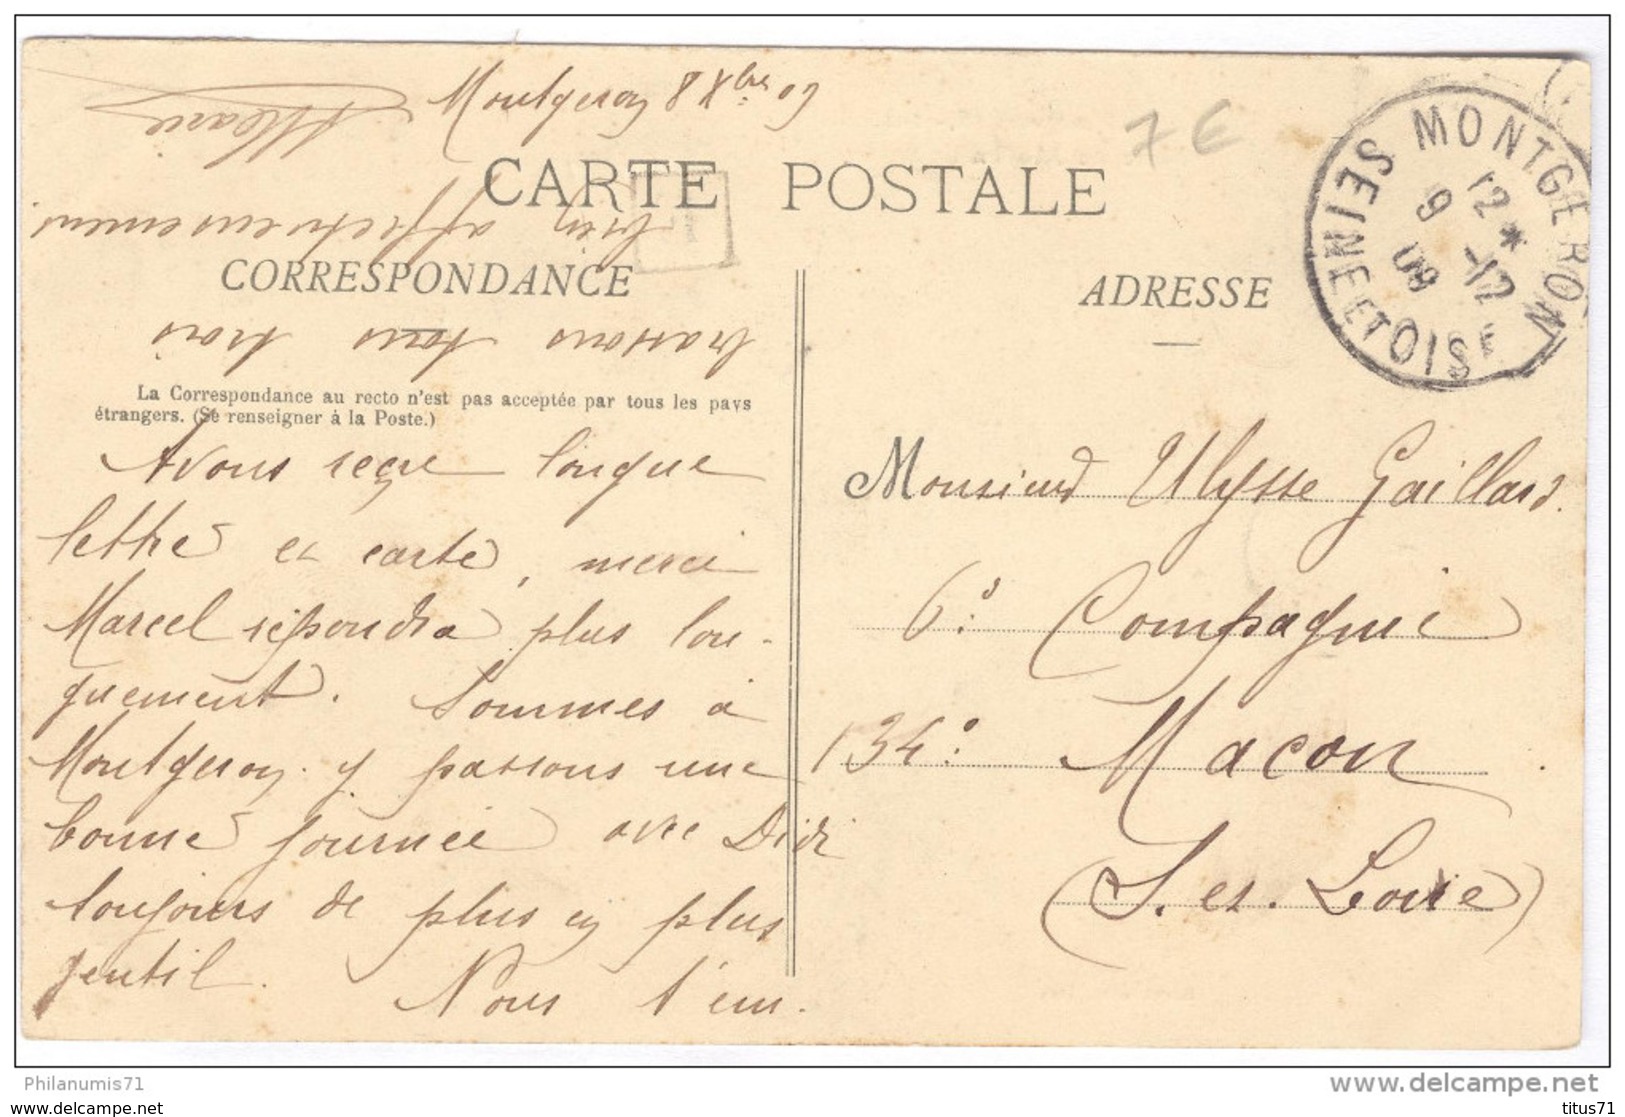 Montgeron 8 Xbre 09
7 €
CARTE POSTALE
MONTGERON
12*
9 -12
09
SEINE ET OISE
CORRESPONDANCE
ADRESSE
La Correspondance au recto n'est pas acceptée par tous les pays
étrangers. (Se renseigner à la Poste.)
Avons reçue longue
lettre et carte, merci
Marcel répondra plus lon-
guement. Sommes à
Montgeron. y passons une
bonne journée avec Didi
toujours de plus en plus
gentil. Nous t'em-
brassons tous trois
bien affectueusement.
Marie
Monsieur Ulysse Gaillard.
6e Compagnie
134e Macon
(S. et. Loire)
Philanumis71
delcampe.net
www.delcampe.net
titus71